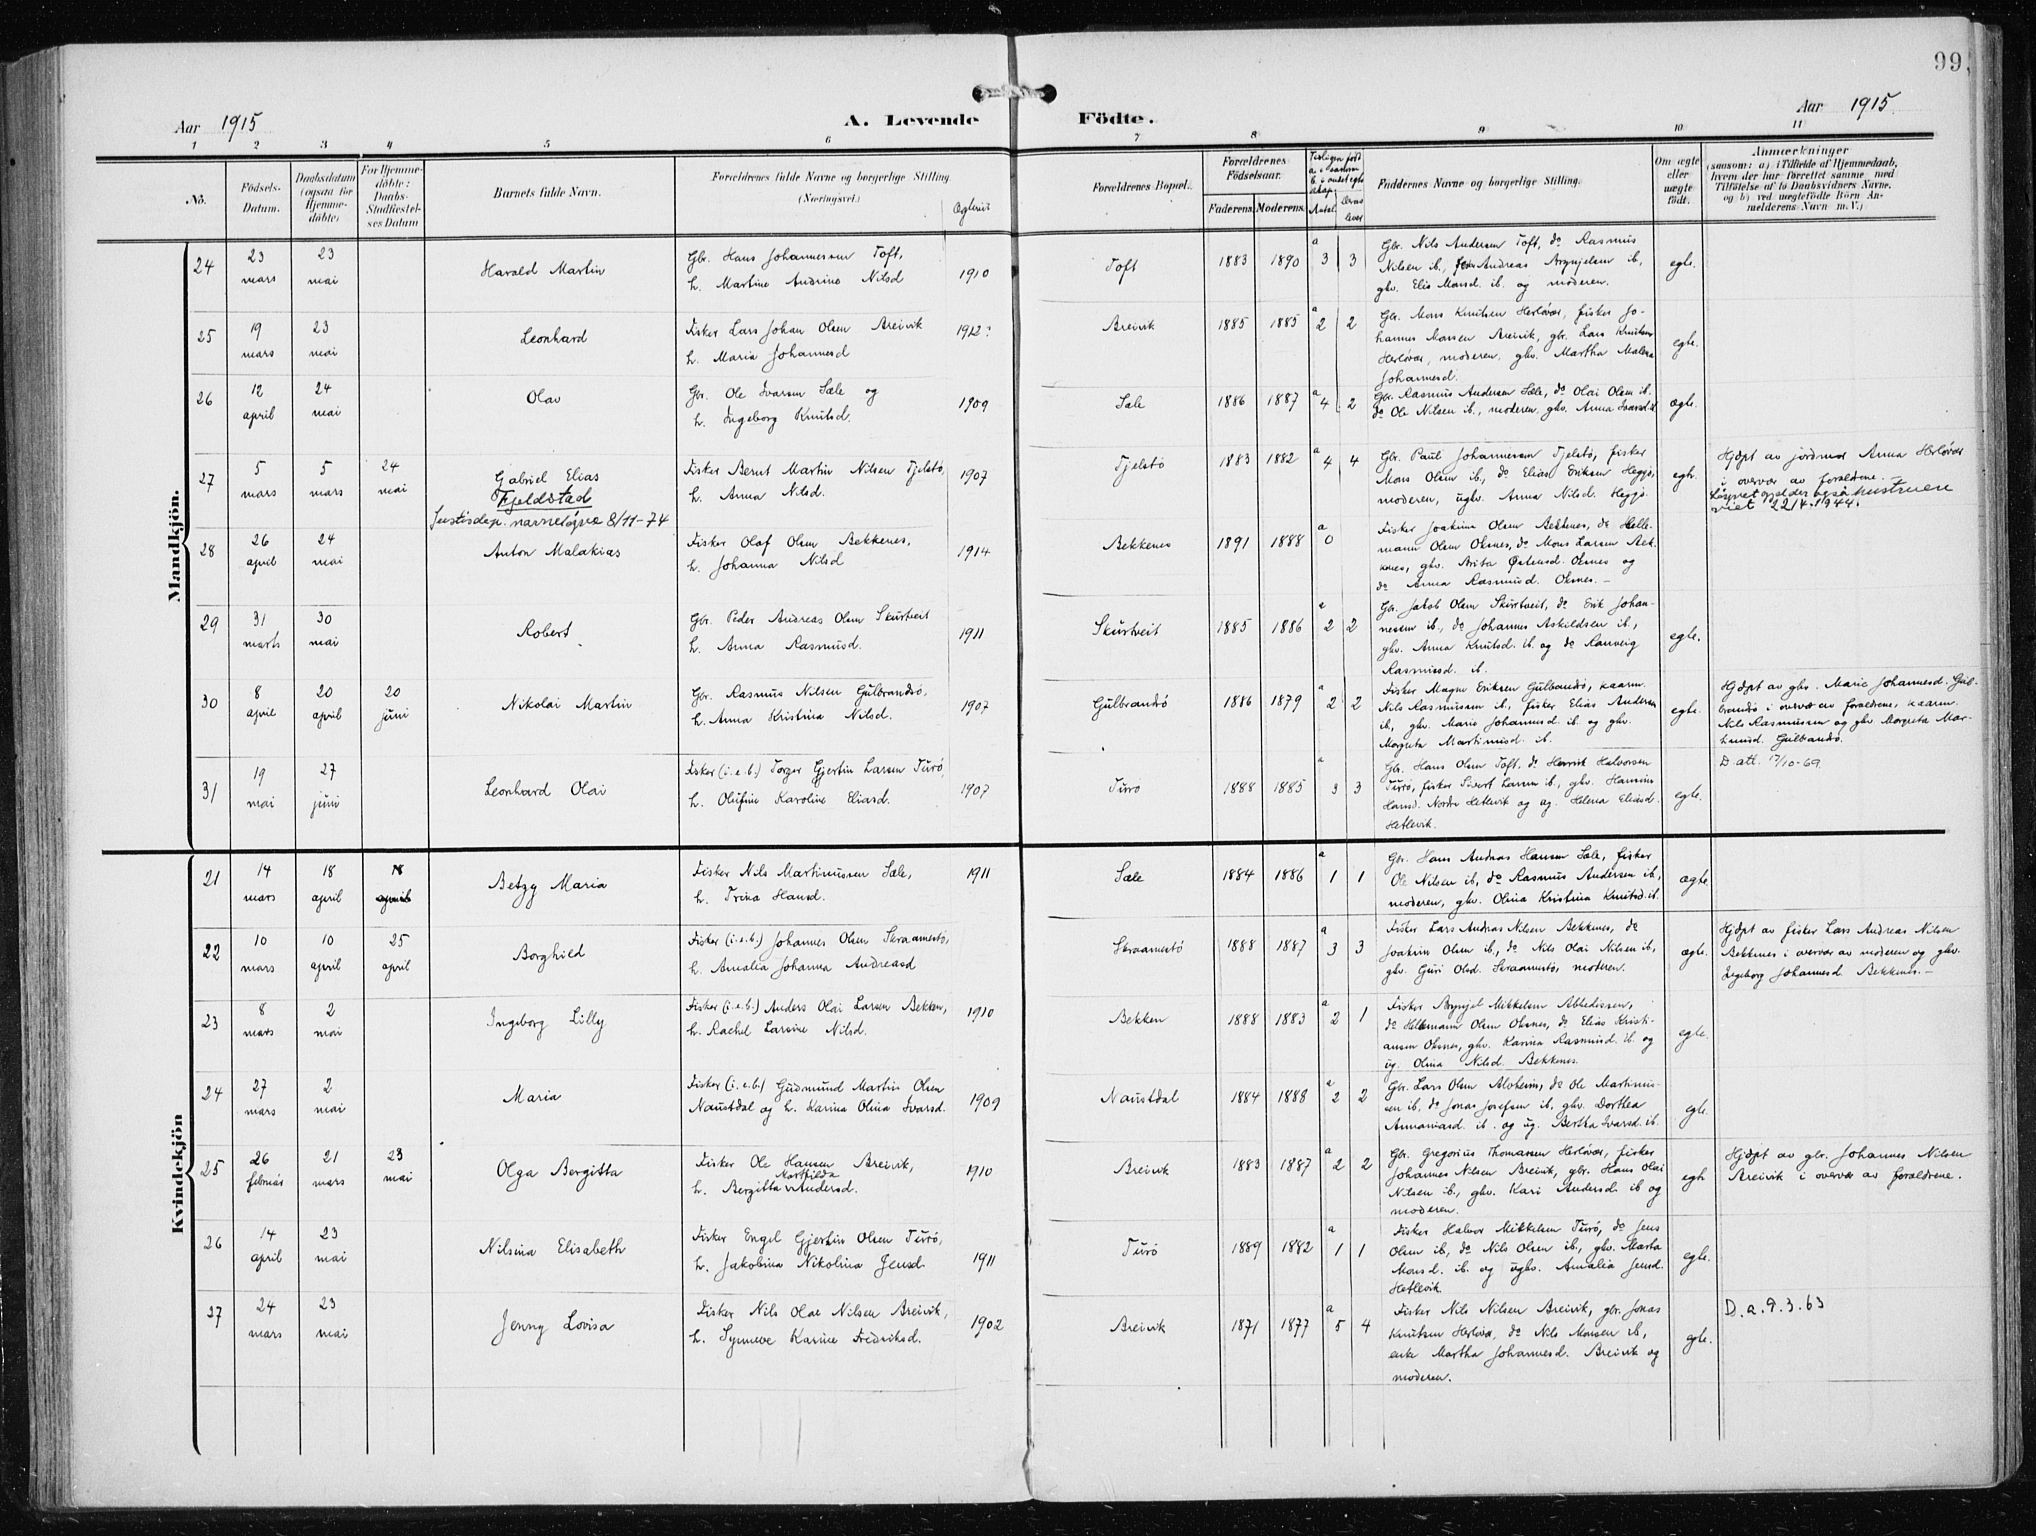 99.
Aar 1915
A. Levende Födte.
Aar 1915.
1 2 3 4 5 6 7 8 9 10 11
No.
Födsels-Datum.
Daabsdatum (ogsaa for Hjemme-döbte)
For Hjemme-döbte: Daabs-Stadfæstel-ses Datum
Barnets fulde Navn.
Forældrenes fulde Navne og borgerlige Stilling (Næringsvei.)
Forældrenes Bopæl.
Forældrenes Födselsaar.
Faderens. Moderens.
Antal
Faddernes Navne og borgerlige Stilling.
Om ægte eller uægte födt.
Anmærkninger
(saasom: a) i Tilfælde af Hjemmedaab, hvem der har forrettet samme med Tilföielse af to Daabsvidners Navne, og b) ved uægtefödte Börn Anmelderens Navn m. V.)
Mandkjön.
24 23 mars 23 mai Harald Martin Gbr. Hans Johannessen Toft, 1910 Toft 1883 1890 a 3 3 Gbr. Nils Andersen Toft, do Rasmus
h. Martine Andrine Nilsd Nilsen ib, Andreas Brynjelsen ib, egte.
gkv. Elis Monsd. ib. og moderen.
25 19 mars 23 mai Leonhard Fisker Lars Johan Olsen Breivik 1912 Breivik 1885 1885 a 2 2 Gbr. Mons Knutsen Herløvær, fisker Jo-
h. Maria Johannesd hannes Monsen Breivik, gbr. Lars Knutsen egte.
Herløvær, moderen, gkv. Martha Malena
Johannesd.
26 12 april 24 mai Olav Gbr. Ole Ivarsen Sæle og 1909 Sæle 1886 1887 a 4 2 Gbr. Rasmus Andersen Sæle, do Olai Olsen ib.
h. Ingeborg Knutsd. do Ole Nilsen ib., moderen, gkv. Anna Ivarsd. ib. ægte.
27 5 mars 5 mars 24 mai Gabriel Elias Fisker Bernt Martin Nilsen Tjelstø, 1907 Tjelstø 1883 1882 a 4 4 Gbr. Paul Johannessen Tjelstø, fisker Hjdpt av jordmor Anna Herløvær
Fjeldstad h. Anna Nilsd. Mons Olsen ib., do Elias Eriksen Heggø, egte. i overvær av foreldrene.
Justisdep. navneløyve 8/11-74 moderen, ugkv. Anna Nilsd. Heggø.
viet 22/4.1944.
28 26 april 24 mai Anton Malakias Fisker Olaf Olsen Bekkenes, 1914 Bekkenes 1891 1888 a 0 Fisker Joakim Olsen Bekkenes, do Helle-
h. Johanna Nilsd mann Olsen Oksnes, do Mons Larsen Bek-
kenes, gkv. Brita Østensd. Oksnes og
do Anna Rasmusd. Oksnes.
29 31 marts 30 mai Robert Gbr. Peder Andreas Olsen Skurtveit 1911 Skurtveit 1885 1886 a 2 2 Gbr. Jakob Olsen Skurtveit, do Erik Johan-
h. Anna Rasmusd. nessen ib., do Johannes Askildsen ib., egte.
gkv. Anna Knutsd. ib. og do Ranveig
Rasmusd. ib.
30 8 april 20 april 20 juni Nikolai Martin Gbr. Rasmus Nilsen Gulbrandsø, 1907 Gulbrandsø 1886 1879 a 2 2 Fisker Magne Eriksen Gulbandsø, kaarm. Hjdpt av gkv. Marie Johannesd. Gul-
h. Anna Kristina Nilsd. Nils Rasmussen ib., fisker Elias Andersen egte. brandsø i overvær av foreldrene, kaarm.
ib., gkv. Marie Johannesd. ib. og gkv. Nils Rasmussen og gkv Margreta Mar-
Margreta Martinusd. ib. tinusd. Gulbandsø.
31 19 mai 27 juni Leonhard Olai Fisker (i.e.b.) Torger Gjertin Larsen Turø, 1907 Turø 1888 1885 a 3 3 Gbr. Hans Olsen Toft, do Henrik Halvorsen D. att. 17/10-69
h. Olufine Karoline Eliasd. Turø, fisker Sivert Larsen ib., gkv. Hansine egte.
Hansd. Nordre Hetlevik og ug. Helena Eliasd.
Hetlevik.
Kvindekjön
21 14 mars 18 april Betzy Maria Fisker Nils Martinussen Sæle, 1911 Sæle 1884 1886 a 1 1 Gbr. Hans Andreas Hansen Sæle, fisker
h. Trina Hansd. Ole Nilsen ib, do Rasmus Andersen ib, ægte.
moderen, gkv. Olina Kristina Knutsd. ib.
22 10 mars 10 april 25 april Borghild Fisker (i.e.b.) Johannes Olsen Skraamestø, Skraamestø 1888 1887 a 3 3 Fisker Lars Andreas Nilsen Bekkenes, do Hjdpt av fisker Lars Andreas Nilsen
h. Amalia Johanna Andreasd Joakim Olsen ib., do Nils Olai Nilsen ib, ægte. Bekkenes i overvær av moderen og gkv.
gkv. Guri Olsd. Skraamestø, moderen. Ingeborg Johannesd. Bekkenes.
23 8 mars 2 mai Ingeborg Lilly Fisker (i.e.b.) Anders Olai Larsen Bekken, 1910 Bekken 1888 1883 a 2 1 Fisker Brynjel Mikkelsen Abbedissen,
h. Rachel Larsine Nilsd. do Hellemann Olsen Oksnes, do Elias Kristi- egte.
ansen Oksnes, gkv. Karina Rasmusd. ib. og
ug. Olina Nilsd. Bekkenes.
24 27 mars 2 mai Maria Fisker (i.e.b.) Gudmund Martin Olsen 1909 Naustdal 1884 1888 a 2 2 Gbr. Lars Olsen Alvheim, do Ole Martinus-
Naustdal og h. Karina Olina Ivarsd. sen ib, do Jonas Josefsen ib, gkv. Dorthea egte.
Annaniasd. ib. og ug. Bertha Ivarsd. ib.
25 26 februar 21 mars 23 mai Olga Bergitta Fisker Ole Hansen Breivik, 1910 Breivik 1883 1887 a 2 2 Gbr. Gregorius Thomassen Herløvær, fisker Hjdpt av gbr. Johannes Nilsen
h. Bergitta Mathilda Andersd. Johannes Nilsen Breivik, gbr. Hans Olai egte Breivik i overvær av foreldrene.
Nilsen ib., gkv. Kari Andersd. ib og
moderen.
26 14 april 23 mai Nilsina Elisabeth Fisker Engel Gjertin Olsen Turø, 1911 Turø 1889 1882 a 1 1 Fisker Halvor Mikkelsen Turø, do Jens
h. Jakobina Nikolina Jensd. Olsen ib., do Nils Olsen ib., gkv. Marta egte.
Monsd. ib. og ugkv. Amalia Jensd.
Hetlevik.
27 24 mars 23 mai Jenny Lovisa Fisker Nils Olai Nilsen Breivik, 1902 Breivik 1871 1877 a 5 4 Fisker Nils Nilsen Breivik, gbr. Jonas D.a.9.3.63
h. Synneve Karine Fredriksd. Knutsen Herløvær, do Nils Monsen ib, egte.
enke Martha Johannesd. Breivik og
moderen.